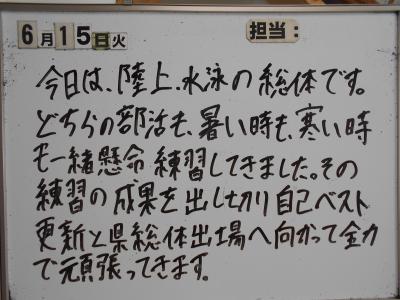 6月15日火 担当:
今日は、陸上、水泳の総体です。
どちらの部活も、暑い時も、寒い時
も一緒懸命練習してきました。その
練習の成果を出し切り自己ベスト
更新と県総体出場へ向かって全力
で頑張ってきます。